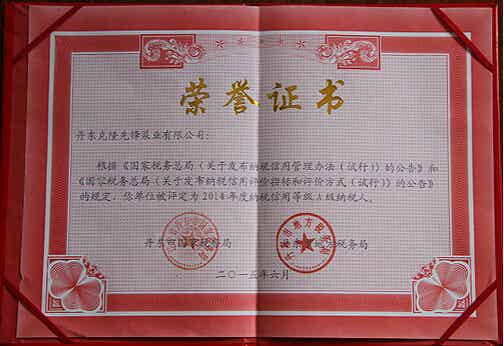 荣誉证书
丹东克隆先锋泵业有限公司:
根据《国家税务总局(关于发布纳税信用管理办法(试行)》的公告》和
《国家税务总局(关于发布纳税信用评价指标和评价方式(试行)》的公告》
的规定,您单位被评定为2014年度纳税信用等级A级纳税人。
丹东市国家税务局 丹东市地方税务局
二〇一五年六月